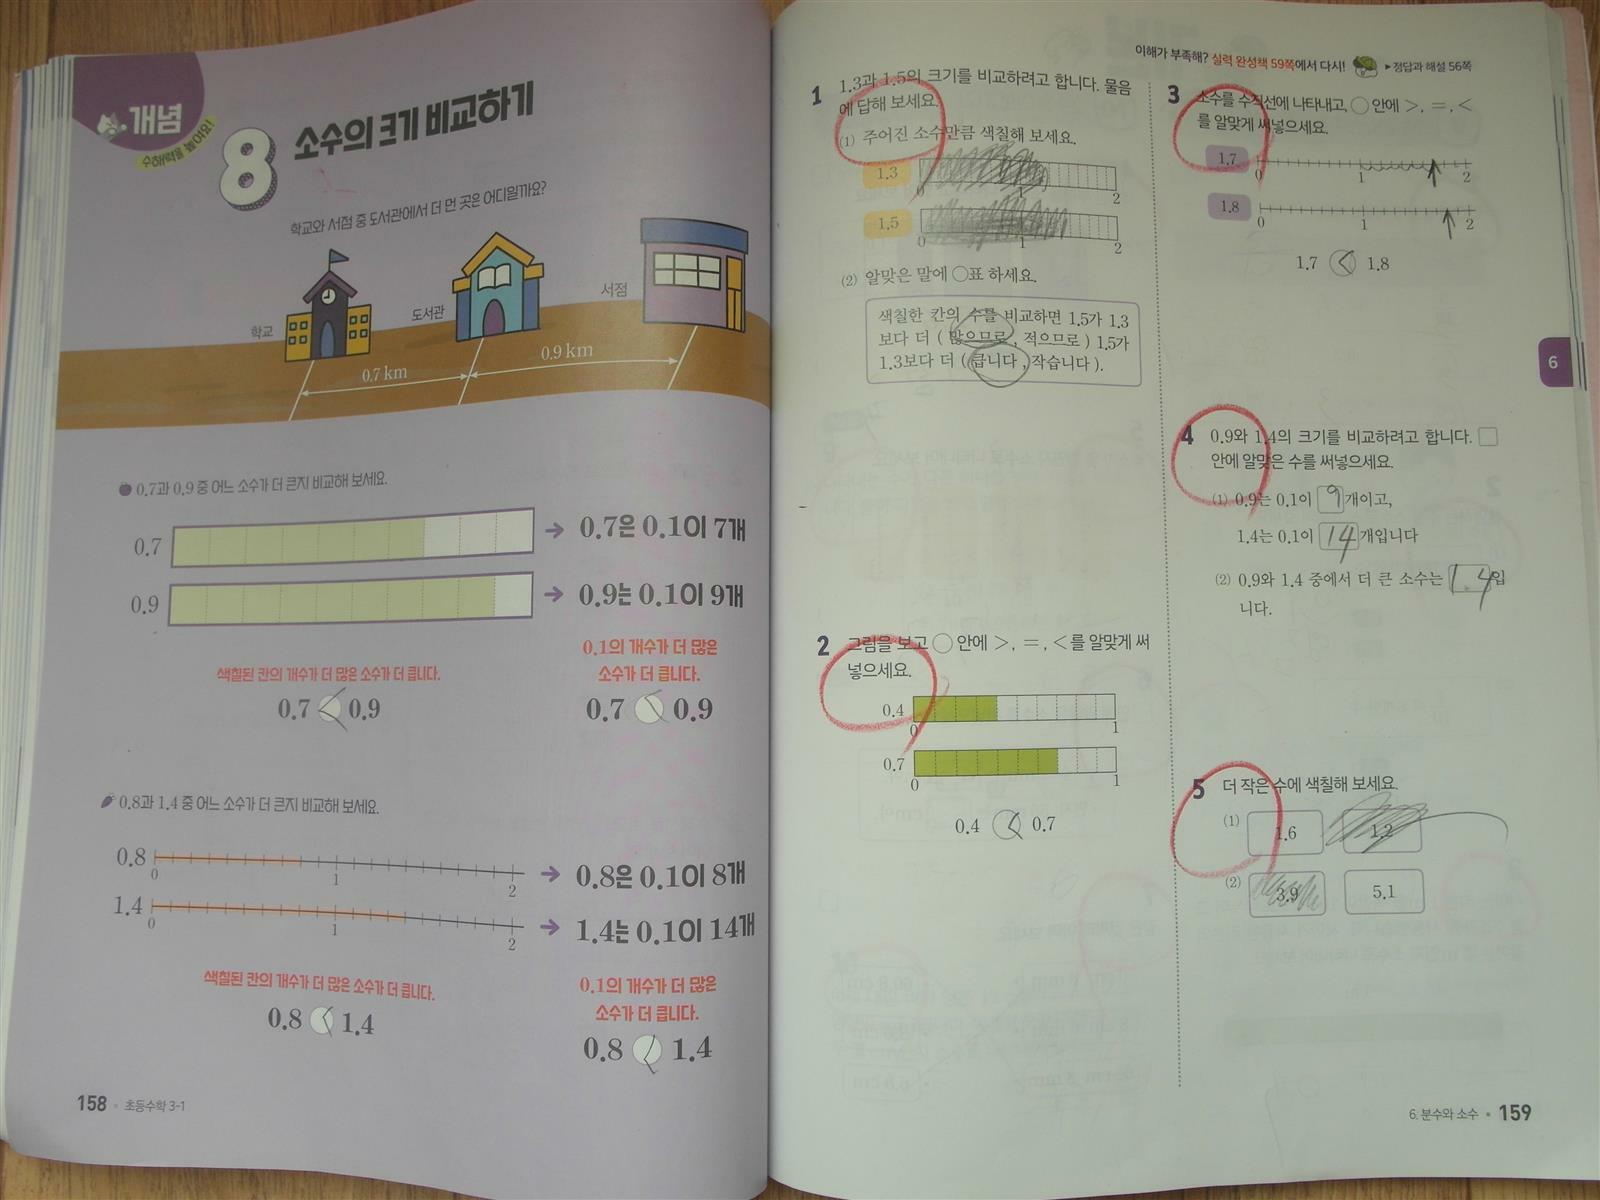 개념
수해력을 높여요!
8
소수의 크기 비교하기
학교와 서점 중 도서관에서 더 먼 곳은 어디일까요?
학교
도서관
서점
0.7 km
0.9 km
0.7과 0.9 중 어느 소수가 더 큰지 비교해 보세요.
0.7 → 0.7은 0.1이 7개
0.9 → 0.9는 0.1이 9개
색칠된 칸의 개수가 더 많은 소수가 더 큽니다.
0.7 < 0.9
0.1의 개수가 더 많은
소수가 더 큽니다.
0.7 < 0.9
0.8과 1.4 중 어느 소수가 더 큰지 비교해 보세요.
0.8 → 0.8은 0.1이 8개
0 1 2
1.4 → 1.4는 0.1이 14개
0 1 2
색칠된 칸의 개수가 더 많은 소수가 더 큽니다.
0.8 < 1.4
0.1의 개수가 더 많은
소수가 더 큽니다.
0.8 < 1.4
158 • 초등수학 3-1
이해가 부족해? 실력 완성책 59쪽에서 다시! ▸정답과 해설 56쪽
1 1.3과 1.5의 크기를 비교하려고 합니다. 물음
에 답해 보세요.
(1) 주어진 소수만큼 색칠해 보세요.
1.3
0 1 2
1.5
0 1 2
(2) 알맞은 말에 ○표 하세요.
색칠한 칸의 수를 비교하면 1.5가 1.3
보다 더 ( 많으므로 , 적으므로 ) 1.5가
1.3보다 더 ( 큽니다 , 작습니다 ).
2 그림을 보고 ○ 안에 >, =, <를 알맞게 써
넣으세요.
0.4
0 1
0.7
0 1
0.4 < 0.7
3 소수를 수직선에 나타내고, ○ 안에 >, =, <
를 알맞게 써넣으세요.
1.7
0 1 2
1.8
0 1 2
1.7 < 1.8
6
4 0.9와 1.4의 크기를 비교하려고 합니다. □
안에 알맞은 수를 써넣으세요.
(1) 0.9는 0.1이 9 개이고,
1.4는 0.1이 14 개입니다
(2) 0.9와 1.4 중에서 더 큰 소수는 1.4 입
니다.
5 더 작은 수에 색칠해 보세요.
(1) 1.6 1.2
(2) 3.9 5.1
6. 분수와 소수 • 159